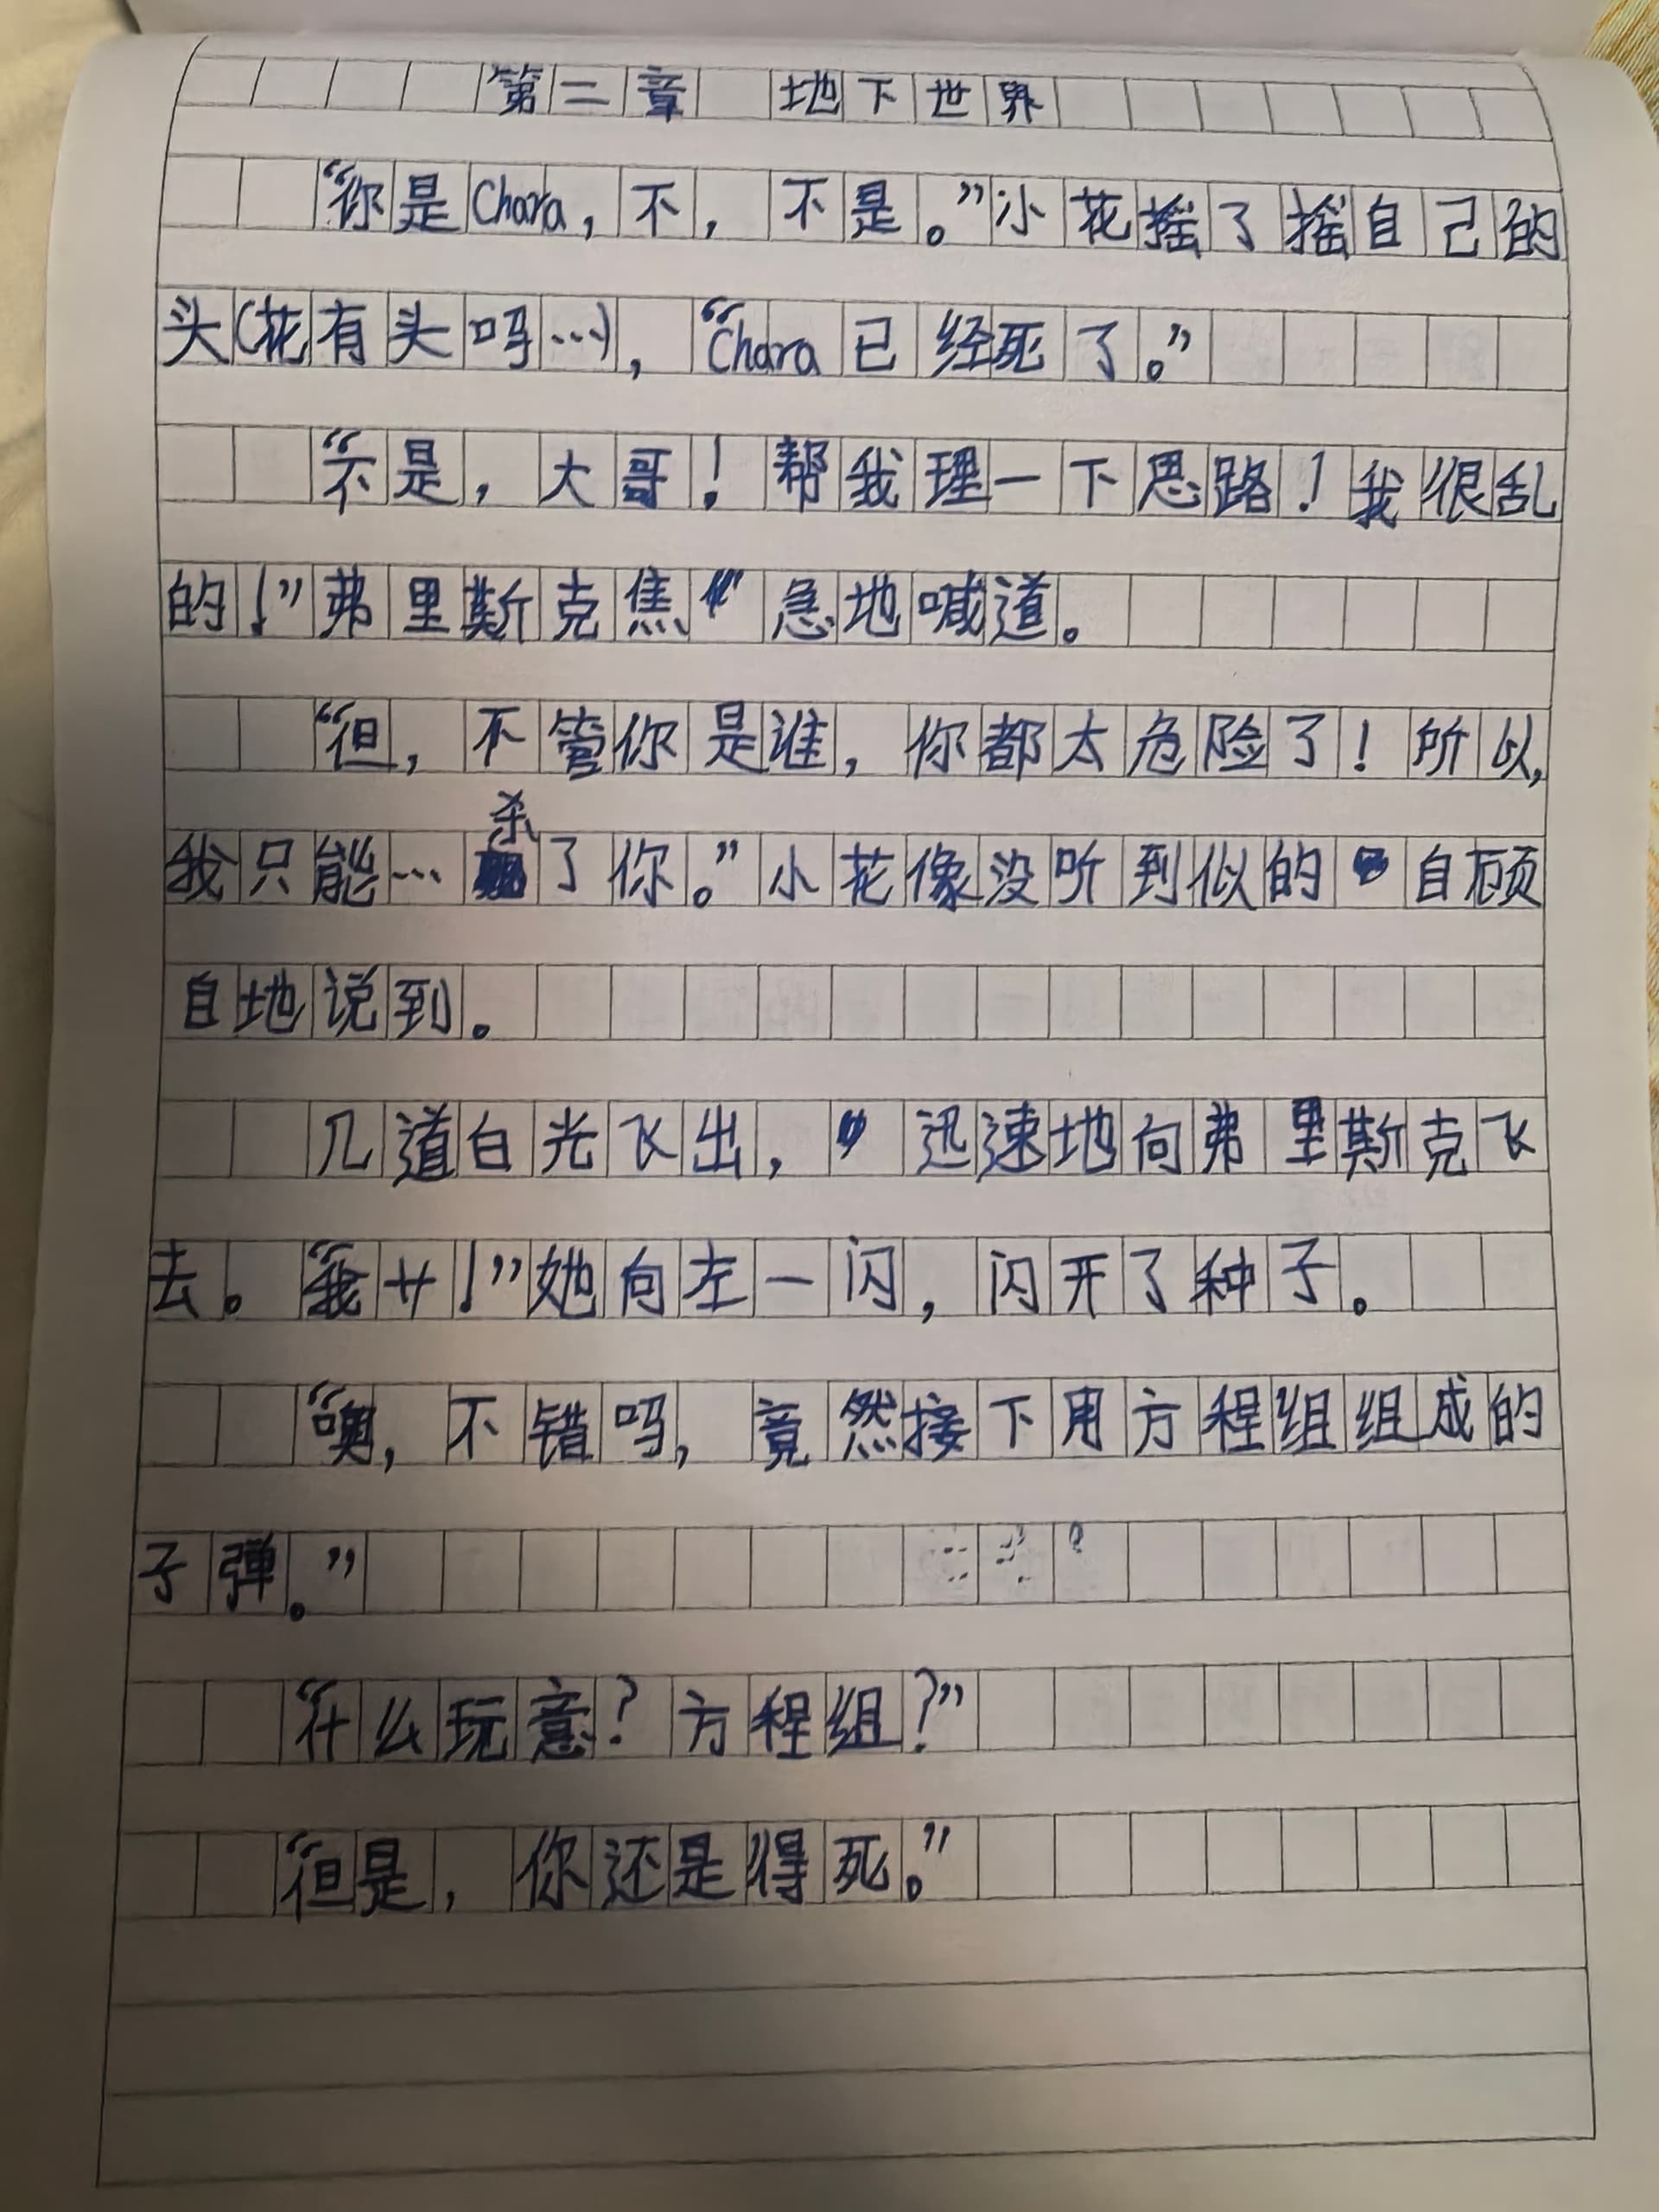 第二章 地下世界
“你是Chara，不，不是。”小花摇了摇自己的
头（花有头吗…），“Chara已经死了。”
“不是，大哥！帮我理一下思路！我很乱
的！”弗里斯克焦急地喊道。
“但，不管你是谁，你都太危险了！所以，
我只能…杀了你。”小花像没听到似的自顾
自地说到。
几道白光飞出，迅速地向弗里斯克飞
去。“我艹！”她向左一闪，闪开了种子。
“噢，不错吗，竟然接下用方程组组成的
子弹。”
“什么玩意？方程组？”
“但是，你还是得死。”